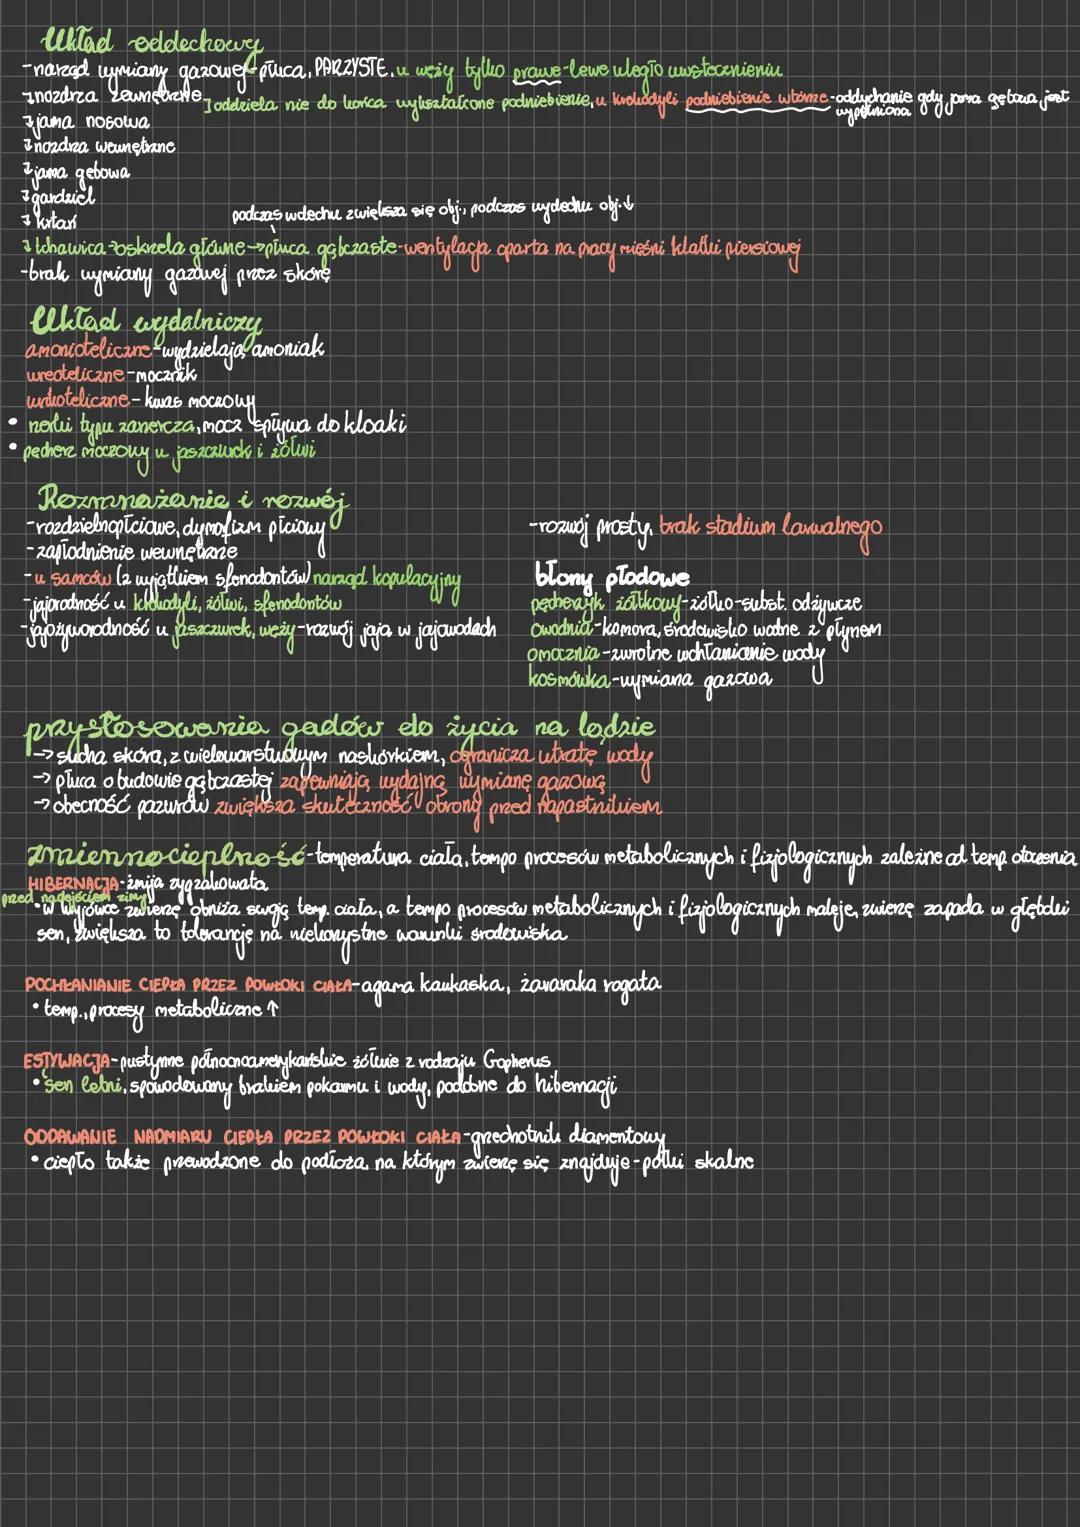 Układ oddechowy
-narząd wymiany gazowej-płuca, PARZYSTE, u węży tylko prawe-lewe uległo uwstecznieniu
↴nozdrza zewnętrzne
]oddziela nie do końca wykształcone podniebienie, u krokodyli podniebienie wtórne-oddychanie gdy jama gębowa jest wypełniona
↴jama nosowa
↴nozdrza wewnętrzne
↴jama gębowa
↴gardziel
↴krtań
podczas wdechu zwiększa się obj., podczas wydechu obj.↓
↴tchawica→oskrzela główne→płuca gąbczaste-wentylacja oparta na pracy mięśni klatki piersiowej
-brak wymiany gazowej przez skórę
Układ wydalniczy
amonioteliczne-wydzielają amoniak
ureoteliczne-mocznik
urikoteliczne-kwas moczowy
• nerki typu zanercza, mocz spływa do kloaki
• pęcherz moczowy u jaszczurek i żółwi
Rozmnażanie i rozwój
-rozdzielnopłciowe, dymofizm płciowy
-zapłodnienie wewnętrzne
-u samców (z wyjątkiem sfenodontów) narząd kopulacyjny
-jajorodność u krokodyli, żółwi, sfenodontów
-jajożyworodność u jaszczurek, węży-rozwój jaja w jajowodach
-rozwój prosty, brak stadium larwalnego
błony płodowe
pęcherzyk żółtkowy-żółtko-subst. odżywcze
owodnia-komora, środowisko wodne z płynem
omocznia-zwrotne wchłanianie wody
kosmówka-wymiana gazowa
przystosowania gadów do życia na lądzie
→sucha skóra, z wielowarstwowym naskórkiem, ogranicza utratę wody
→płuca o budowie gąbczastej zapewniają wydajną wymianę gazową
→obecność pazurów zwiększa skuteczność obrony przed napastnikiem
zmiennocieplność-temperatura ciała, tempo procesów metabolicznych i fizjologicznych zależne od temp. otoczenia
HIBERNACJA-żmija zygzakowata
przed nadejściem zimy
•w kryjówce zwierzę obniża swoją temp. ciała, a tempo procesów metabolicznych i fizjologicznych maleje, zwierzę zapada w głęboki
sen, zwiększa to tolerancję na niekorzystne warunki środowiska
POCHŁANIANIE CIEPŁA PRZEZ POWŁOKI CIAŁA-agama kaukaska, żararaka rogata
•temp., procesy metaboliczne ↑
ESTYWACJA-pustynne północnoamerykańskie żółwie z rodzaju Gopherus
•sen letni, spowodowany brakiem pokarmu i wody, podobne do hibernacji
ODDAWANIE NADMIARU CIEPŁA PRZEZ POWŁOKI CIAŁA-grzechotnik diamentowy
•ciepło także przewodzone do podłoża, na którym zwierzę się znajduje-półki skalne